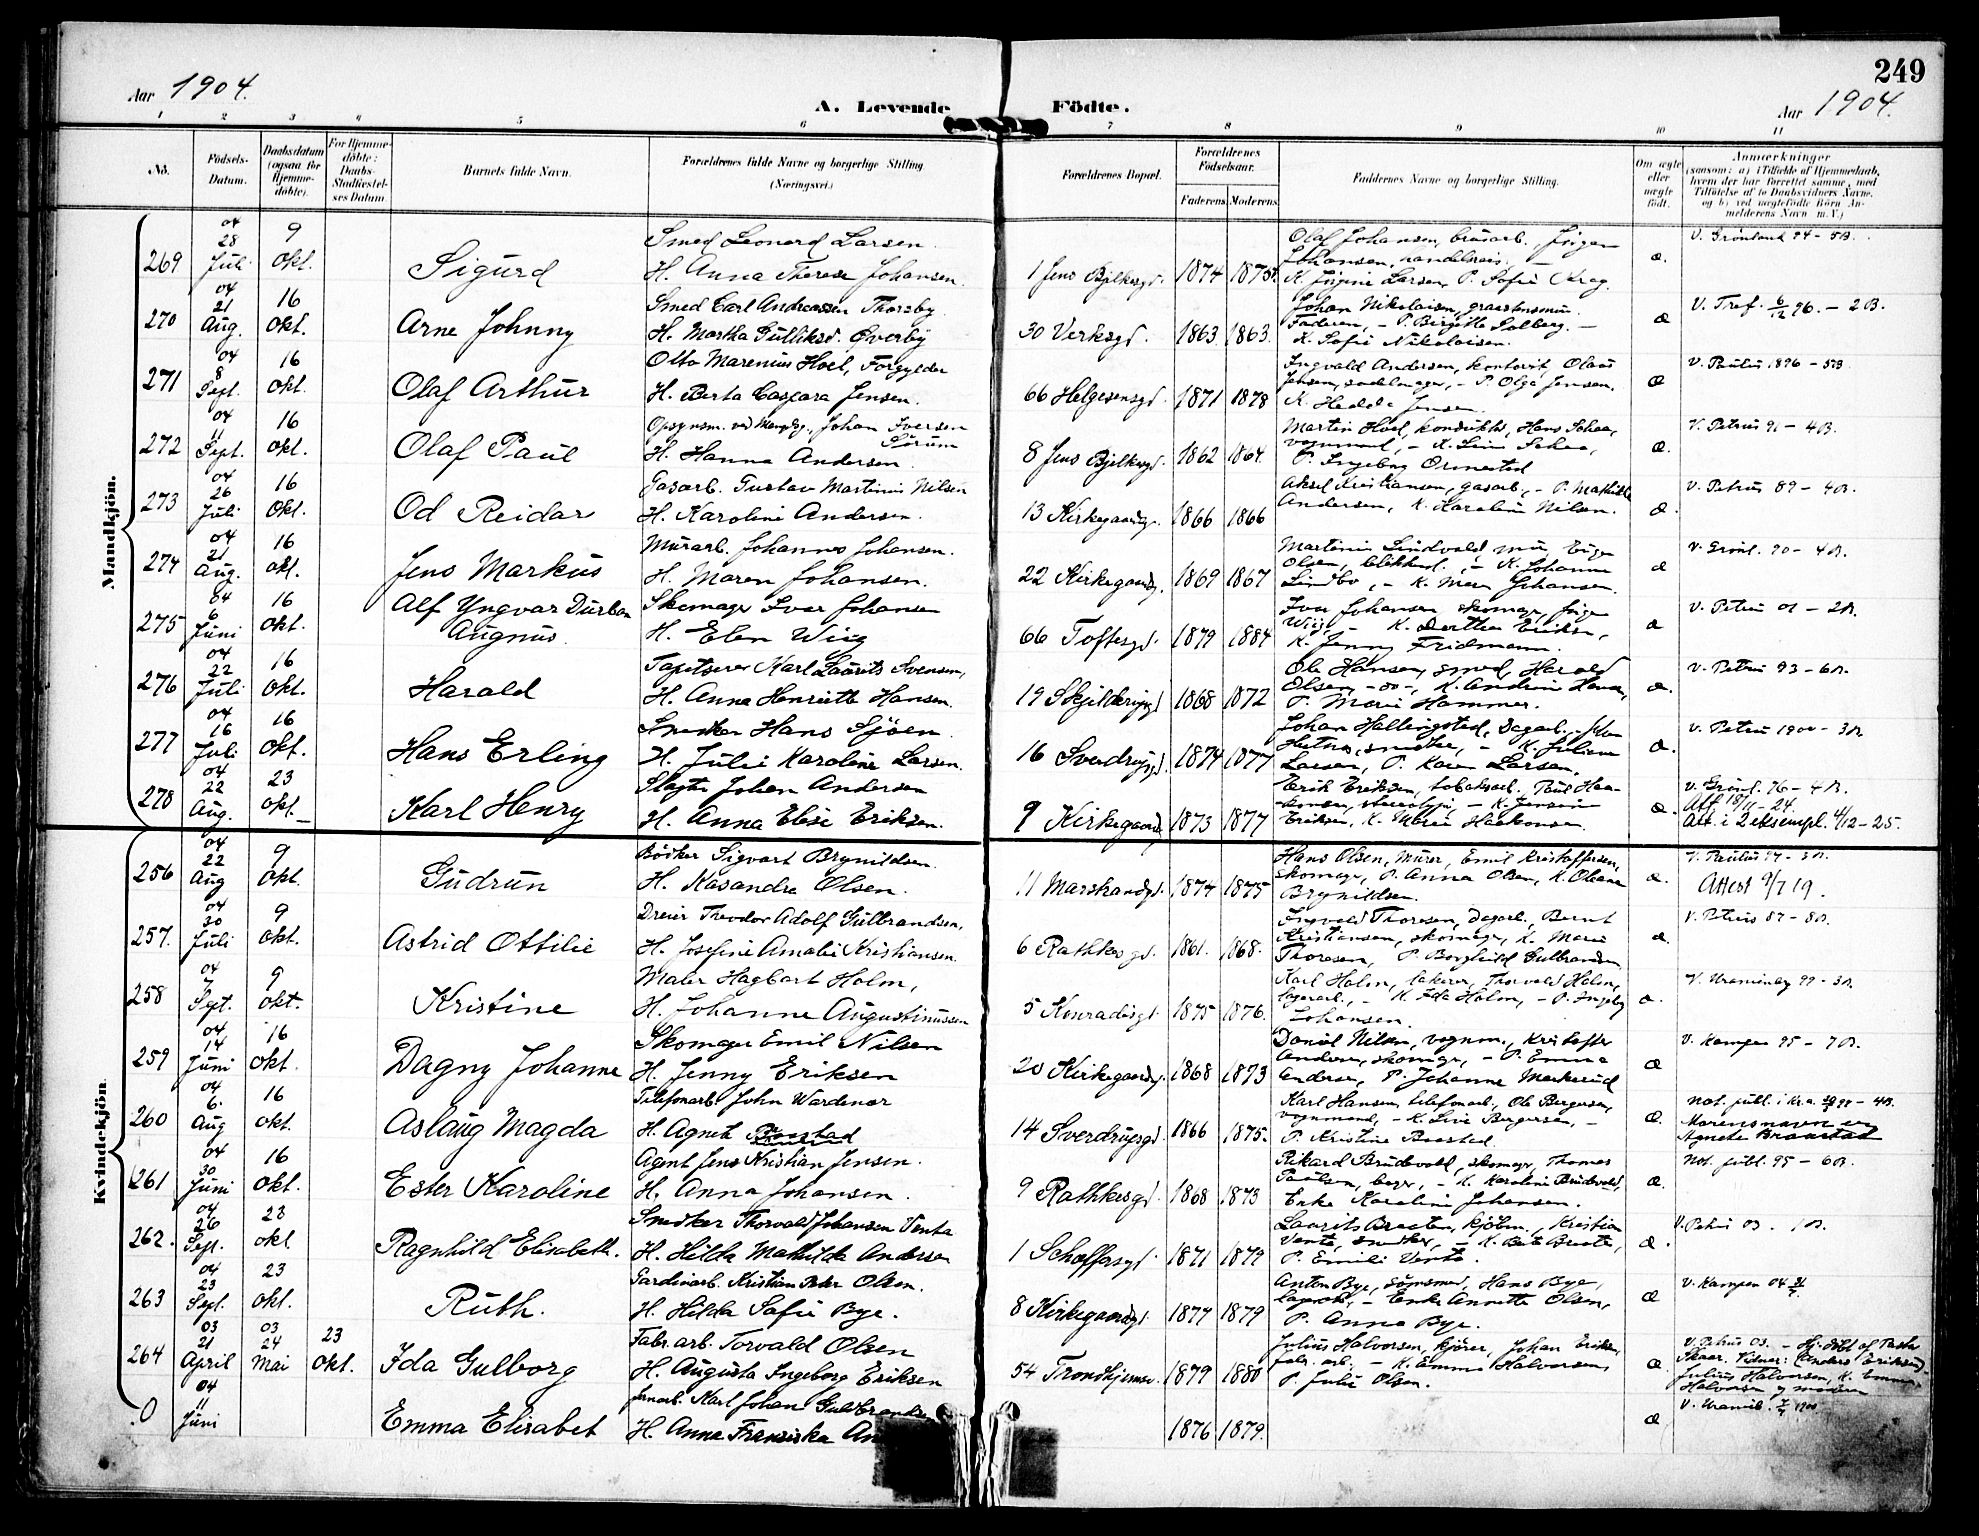 249
Aar 1904.
A. Levende Födte.
Aar 1904.
1 2 3 4 5 6 7 8 9 10 11
No.
Födsels-Datum.
Daabsdatum (ogsaa for Hjemme-döbte).
For Hjemme-döbte: Daabs-Stadfæstel-ses Datum.
Barnets fulde Navn.
Forældrenes fulde Navne og borgerlige Stilling (Næringsvei.)
Forældrenes Bopæl.
Forældrenes Födselsaar.
Faderens Moderens
Faddernes Navne og borgerlige Stilling.
Om ægte eller uægte födt.
Anmærkninger
(saasom: a) i Tilfælde af Hjemmedaab, hvem der har forrettet samme, med Tilföielse af to Daabsvidners Navne, og b) ved uægtefödte Börn An-melderens Navn m. V.)
Mandkjön.
269 04 28 Juli 9 Okt. Sigurd
Smed Leonard Larsen
H. Anna Therese Johansen
1 Jens Bjelkesgd. 1874 1875
K. Jörgine Larsen, P. Sofie Krag.
æ.
V. Grönland 94 - 5B.
270 04 21 Aug. 16 Okt. Arne Johnny
Smed Carl Andreassen Thorsby
H. Martha Gulliksd. Överby
30 Verksgd. 1863 1863.
Johan Nikolaisen,
Faderen, - P. Birgitte Solberg. -
K. Sofie Nikolaisen.
æ
V. Tref. 6/12 96. - 2B.
271 04 8 Sept. 16 Okt. Olaf Arthur
Otto Marenius Hoel, Forgylder
H. Berta Caspara Jensen.
66 Helgesensgd. 1871 1878
Ingvald Andersen, kontorist, Olaus
Jensen, sadelmager, - P. Olga Jensen.
K. Hedda Jensen.
æ
V. Paulus 1896 - 5B
272 04 11 Sept. 16 Okt. Olaf Paul
Johan Iversen Sörum
H. Hanna Andersen
8 Jens Bjelkesgd. 1862 1864.
Martin Hoel, konduktör, Hans
P. Ingeborg Ormestad
æ.
V. Petrus 91 - 4B.
273 04 26 Juli 16 Okt. Od Reidar
Gasarb. Gustav Martinius Nilsen
H. Karoline Andersen.
13 Kirkegaardsg. 1866 1866
Aksel Kristiansen, gasarb., - P. Mathilde
Andersen, K. Karoline Nilsen.
æ.
V. Petrus 89 - 4B.
274 04 21 Aug. 16 Okt. Jens Markus
Murarb. Johannes Johansen.
H. Maren Johansen.
22 Kirkegaardsg. 1869 1867
Martinius Lindvold,
Olsen, - K. Johanne
Lindbo, - K. Johansen.
æ
V. Grönl. 90 - 4B.
275 84 6 Juni 16 Okt. Alf Yngvar Durban
Augnus.
Skomager Ivar Johansen
H. Elen Wiig
66 Toftesgd. 1879 1884
Ivar Johansen skomager,
Wiig, - K. Dorthea Eriksen,
K. Jenny Fridmann.
æ
V. Petrus 01 - 2B.
276 04 22 Juli 16 Okt. Harald
Tapetserer Karl Laurits Svensen,
H. Anna Henriette Hansen.
19 1868 1872
Ole Hansen, smed, Harald
Olsen, -so-, K. Andrine Hansen,
P. Marie Hammer.
æ.
V. Petrus 93 - 6B.
277 04 16 Juli 16 Okt. Hans Erling
Snedker Hans Sjöen
H. Julie Karoline Larsen.
16 Sverdrupsgd. 1874 1877
Johan Hallingstad, Dagarb.
snedker, - K. Juliane
Larsen, P. Karen Larsen.
æ.
V. Petrus 1900 - 3B
278 04 22 Aug. 23 Okt. Karl Henry
Slagter Johan Andersen
H. Anna Elise Eriksen.
9 Kirkegaardsg. 1873 1877
Erik Eriksen, Paul Haa-
konsen, stereotypör, - K.
Eriksen, K. Marie Haakonsen.
æ.
V. Grönl. 96 - 4B.
Att. 18/11 - 24.
Att. i 2 eksempl. 4/12 - 25.
Kvindekjön.
256 04 22 Aug 9 Okt. Gudrun
Bödker Sigvart Brynildsen
H. Kasandra Olsen.
11 Markvandsgd. 1874 1875
Hans Olsen, Murer, Emil Kristoffersen,
skomager, P. Anna Olsen, K. Oleane
Brynildsen.
æ.
V. Paulus 97 - 3B.
Attest 9/7 19.
257. 04 30 Juli 9 Okt. Astrid Ottilie
Dreier Theodor Adolf Gulbrandsen,
H. Josefine Amalie Kristiansen.
6 Rathkesgd. 1861. 1868.
Ingvald Thoresen, Dagarb., Bernt
Kristiansen, skomager, K. Marie
Thoresen, P. Borghild Gulbrandsen
æ.
V. Petrus 87 - 8B.
258 04 7 Sept. 9 Okt. Kristine
Maler Hagbart Holm,
H. Johanne Augustinussen
5 Konradisgt. 1875 1876.
Karl Holm, lakerer, Thorvald Holm,
lagerarb., - K. Ida Holm, - P. Ingeborg
Johansen.
æ.
V. Uranienborg 99 - 3B.
259 04 14 Juni 16 Okt. Dagny Johanne
Skomager Emil Nilsen
H. Jenny Eriksen
20 Kirkegaardsg. 1868 1873
Daniel Nilsen, vognm., Kristoffer
Andersen, skomager, - P. Emma
Andersen, P. Johanne Markerud
æ
V. Kampen 95 - 7B.
260 04 6. Aug 16 Okt. Aslaug Magda
Telefonarb. John Wardenær
H. Agnete Braastad
14 Sverdrupsgd. 1866 1875.
Karl Hansen, telefonarb., Ole Bergersen,
vognmand, - K. Live Bergersen, -
P. Kristine Braastad.
æ.
Not. publ. i Kr.a 98 - 4B.
Morens navn er
Agnete Braastad
261 04 30 Juni 16 Okt. Ester Karoline
Agent Jens Kristian Jensen.
H. Anna Johansen.
9 Rathkesgd. 1868 1873
Rikard Brudevold, skomager, Thomas
Paulsen, - K. Karoline Brudevold,
Enke Karoline Johansen.
æ.
Not. publ. 95 - 6B.
262. 04 26 Sept. 23 Okt. Ragnhild Elisabeth.
Snedker Thorvald Johansen Venta
H. Hilda Mathilde Andersen
1 Schoffersgd. 1871 1879
Laurits Braaten, kjöbm., Kristian
Venta, snedker, - K. Berte Braaten,
P. Emilie Venta.
æ.
V. Petrus 03. 1B.
263 04 23 Sept. 23 Okt. Ruth.
Gardinarb. Kristian Peter Olsen.
H. Hilda Sofie Bye.
8 Kirkegaardsgt. 1877 1879
Anton Bye, Hans Bye,
- Enke Annette Olsen,
P. Anna Bye.
æ
V. Kampen 04
264 03 21 April 03 24 Mai 23 Okt. Ida Gulborg
Fabr. arb. Torvald Olsen
H. Augusta Ingeborg Eriksen
54 Trondhjemsv. 1879 1880
Julius Halvorsen, kjörer, Johan Eriksen,
fabr. arb., - K. Emma Halvorsen,
P. Julie Olsen.
æ
V. Petrus 03. - Hj. döbt af Pastor
Skaar. Vidner: Anders Eriksen
Julius Halvorsen, K. Emma
Halvorsen og moderen
0 04 11 Juni Emma Elisabet
Jernarb. Karl Johan Guldbrandsen
H. Anna Fransiska
1876 1879.
æ
V. Uranib. 1900